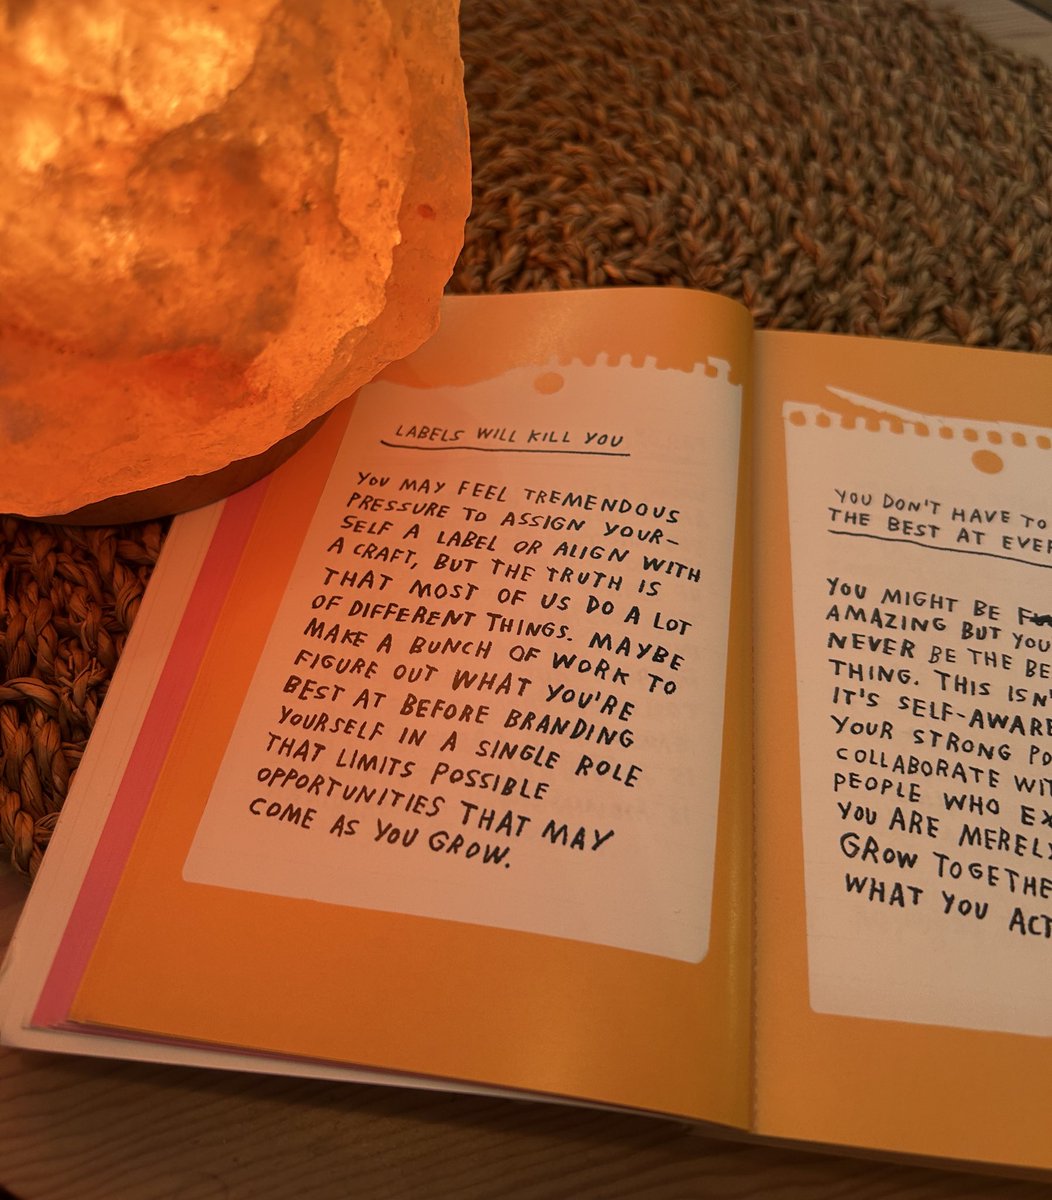 LABELS WILL KILL YOU
YOU MAY FEEL TREMENDOUS
PRESSURE TO ASSIGN YOUR-
SELF A LABEL OR ALIGN WITH
A CRAFT, BUT THE TRUTH IS
THAT MOST OF US DO A LOT
OF DIFFERENT THINGS. MAYBE
MAKE A BUNCH OF WORK TO
FIGURE OUT WHAT YOU'RE
BEST AT BEFORE BRANDING
YOURSELF IN A SINGLE ROLE
THAT LIMITS POSSIBLE
OPPORTUNITIES THAT MAY
COME AS YOU GROW.
YOU DON'T HAVE TO
THE BEST AT EVER
YOU MIGHT BE
AMAZING BUT YOU
NEVER BE THE BE
THING. THIS ISN'T
IT'S SELF-AWARE
YOUR STRONG PO
COLLABORATE WIT
PEOPLE WHO EX
YOU ARE MERELY
GROW TOGETHE
WHAT YOU ACT